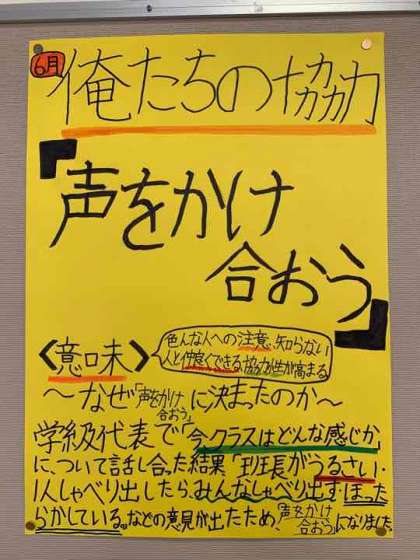 6月
俺たちの協力
『声をかけ
合おう』
〈意味〉
色んな人への注意、知らない
人と仲良くできる、協力性が高まる
〜なぜ「声をかけ合おう」に決まったのか〜
学級代表で「今、クラスはどんな感じか」
に、ついて話し合った結果「班長がうるさい・
1人しゃべり出したら、みんなしゃべり出す・ほった
らかしている。などの意見が出たため、「声をかけ合おう」になりました。